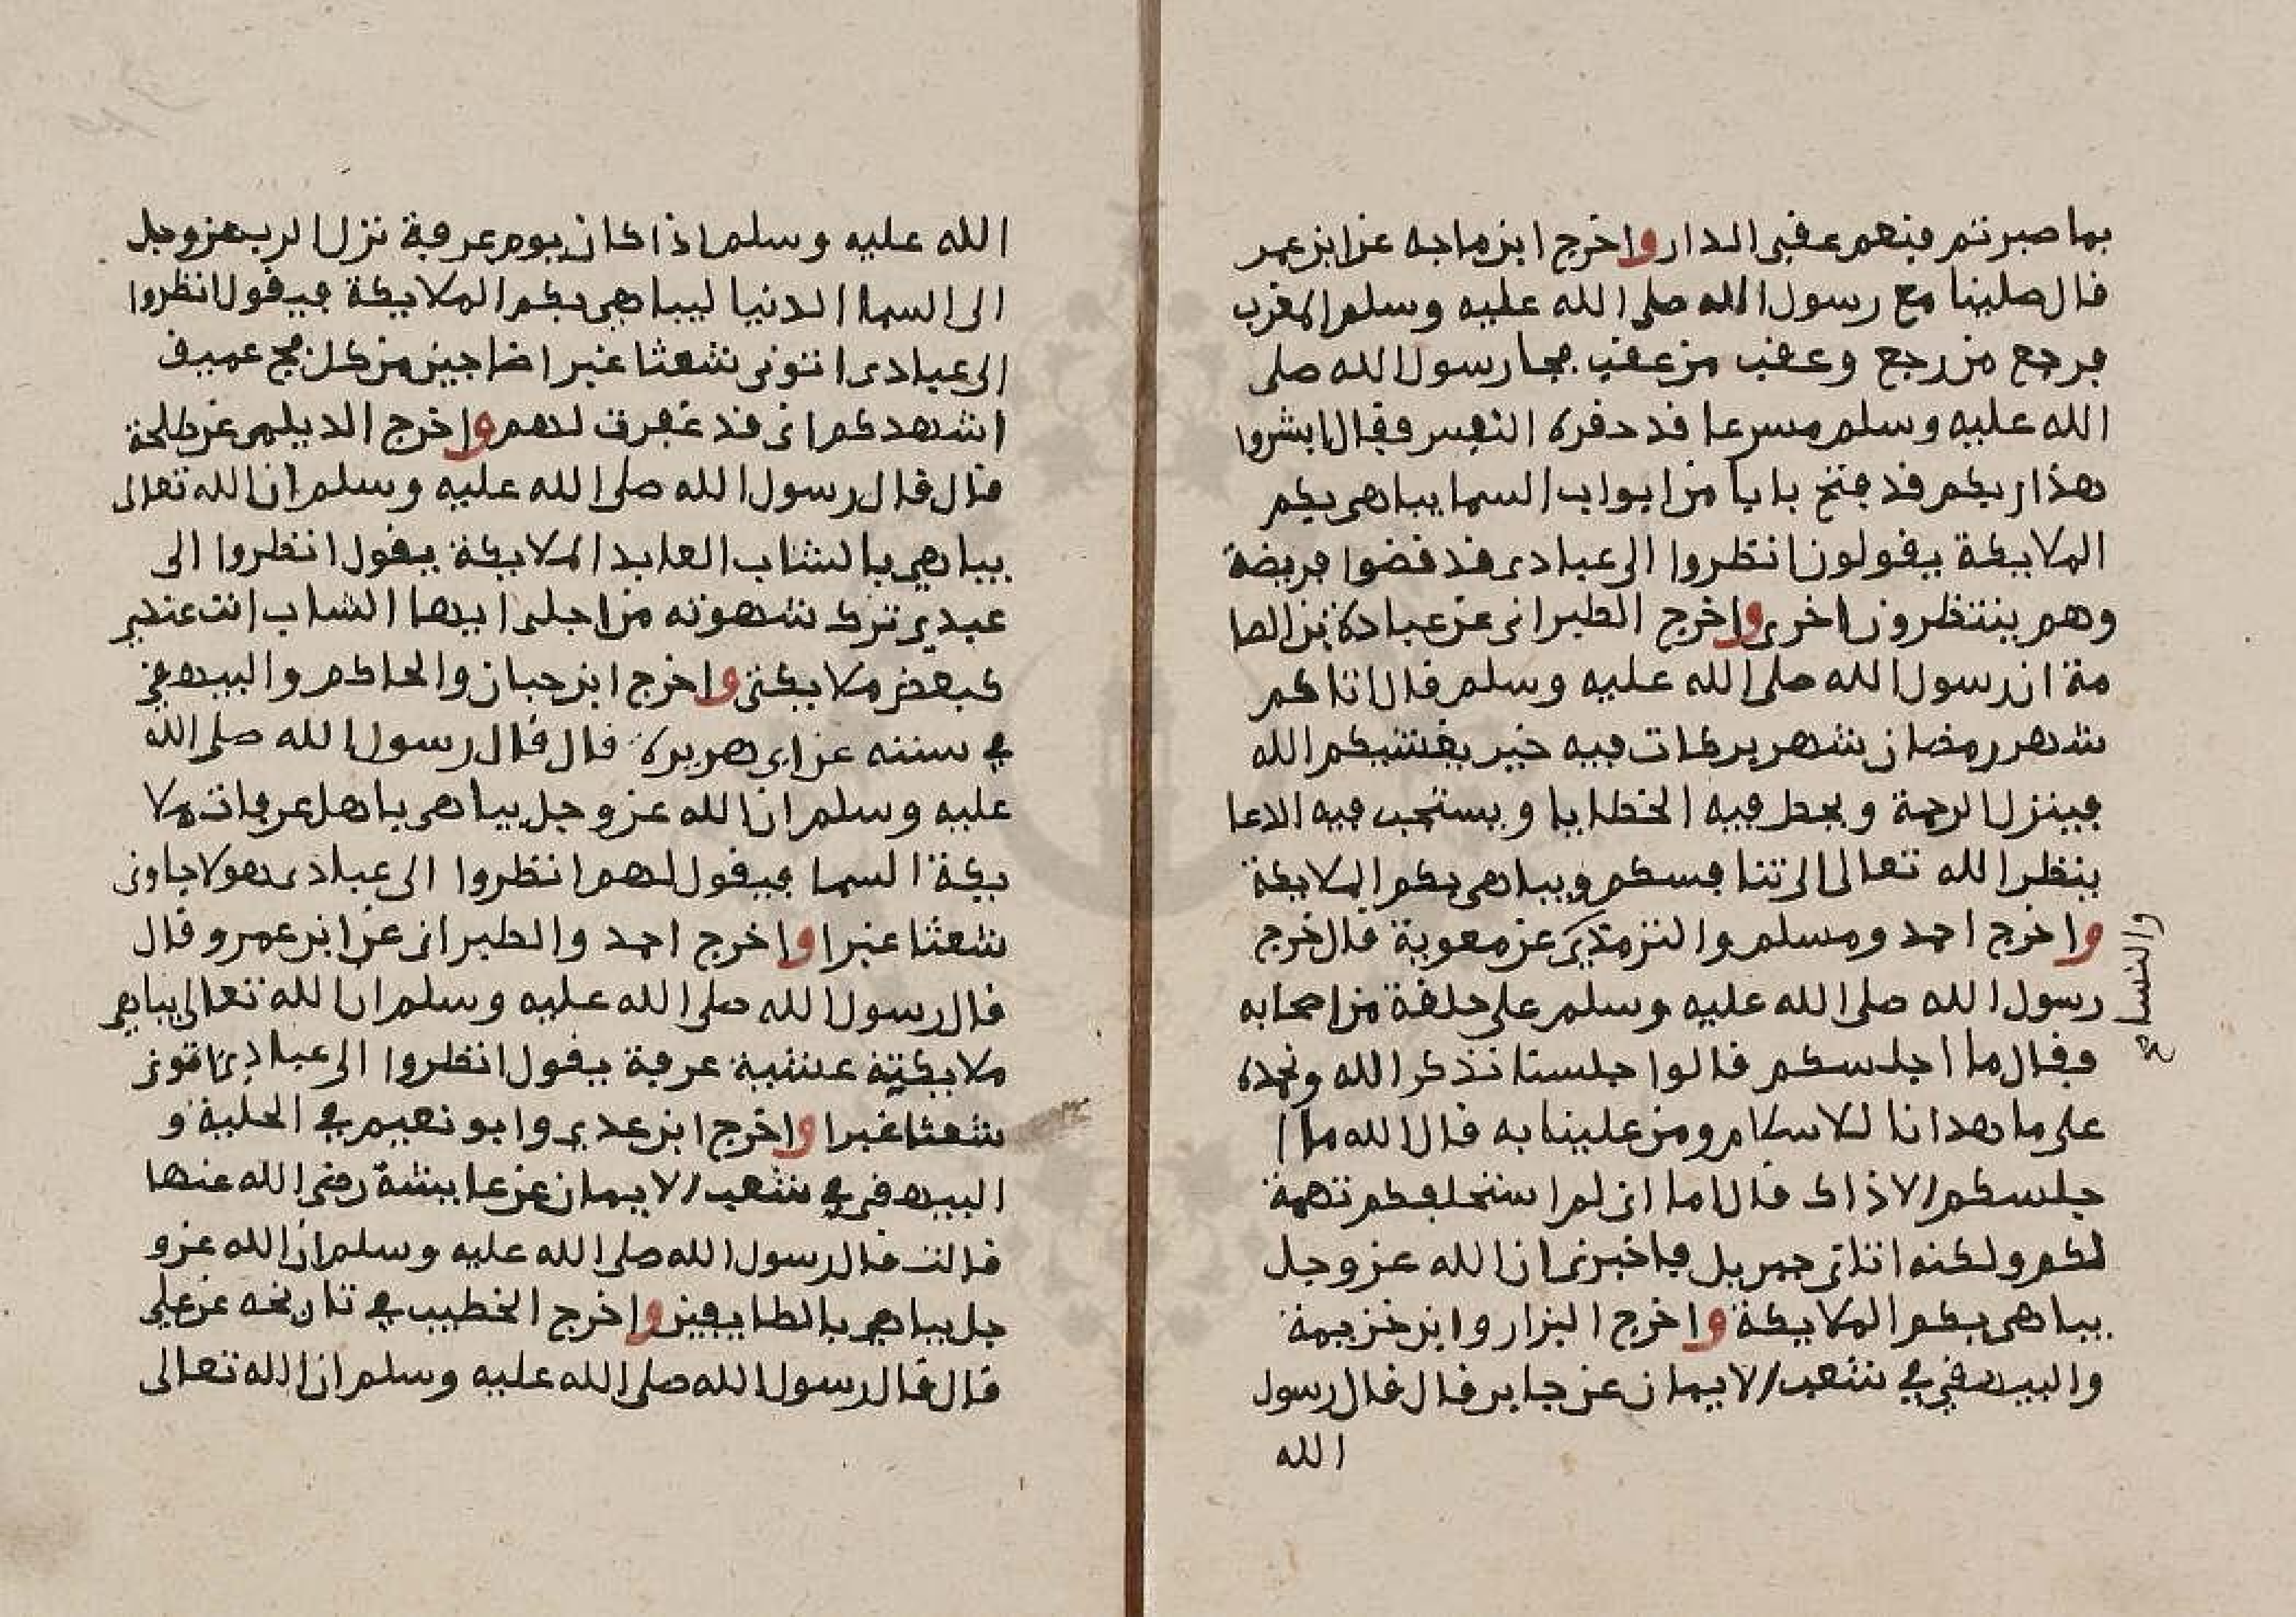 بما صبرتم فنعم عقبى الدار واخرج ابن ماجه عن ابن عمر
قال صلينا مع رسول الله صلى الله عليه وسلم المغرب
فرجع من رجع وعقب من عقب فجا رسول الله صلى
الله عليه وسلم مسرعا قد حفزه النفس فقال ابشروا
هذا ربكم قد فتح بابا من ابواب السما يباهى بكم
الملايكة يقولون انظروا الى عبادى قد قضوا فريضة
وهم ينتظرون اخرى واخرج الطبرانى عن عبادة بن الصا
مة ان رسول الله صلى الله عليه وسلم قال اتاكم
شهر رمضان شهر بركات فيه خير يغشيكم الله
فينزل الرحمة ويحط فيه الخطايا ويستجب فيه الدعا
ينظر الله تعالى الى تنافسكم ويباهى بكم الملايكة
واخرج احمد ومسلم والترمذي عن معوية قال خرج
والنساى
صح
رسول الله صلى الله عليه وسلم على حلقة من اصحابه
فقال ما اجلسكم قالوا جلسنا نذكر الله ونحمده
على ما هدانا للاسلام ومن علينا به قال الله ما ا
جلسكم الا ذاك قال اما انى لم استحلفكم تهمة
لكم ولكنه اتانى جبريل فاخبرنى ان الله عز وجل
يباهى بكم الملايكة واخرج البزار وابن خزيمة
والبيهقى في شعب الايمان عن جابر قال قال رسول
الله
الله عليه وسلم اذا كان يوم عرفة نزل الرب عز وجل
الى السما الدنيا ليباهى بكم الملايكة فيقول انظروا
الى عبادى اتونى شعثا غبرا ضاجين من كل فج عميق
اشهدكم انى قد غفرت لهم واخرج الديلمى عن طلحة
قال قال رسول الله صلى الله عليه وسلم ان الله تعالى
يباهي بالشاب العابد الملايكة يقول انظروا الى
عبدي ترك شهوته من اجلى ايها الشاب انت عندي
كبعض ملايكتى واخرج ابن حبان والحاكم والبيهقي
في سننه عن ابى هريرة قال قال رسول الله صلى الله
عليه وسلم ان الله عز وجل يباهى باهل عرفات ملا
يكة السما فيقول لهم انظروا الى عبادى هولا جاونى
شعثا غبرا واخرج احمد والطبرانى عن ابن عمرو قال
قال رسول الله صلى الله عليه وسلم ان الله تعالى يباهي
ملايكته عشية عرفة يقول انظروا الى عبادي اتونى
شعثا غبرا واخرج ابن عدي وابو نعيم في الحلية و
البيهقى في شعب الايمان عن عايشة رضى الله عنها
قالت قال رسول الله صلى الله عليه وسلم ان الله عز و
جل يباهي بالطايفين واخرج الخطيب في تاريخه عن علي
قال قال رسول الله صلى الله عليه وسلم ان الله تعالى